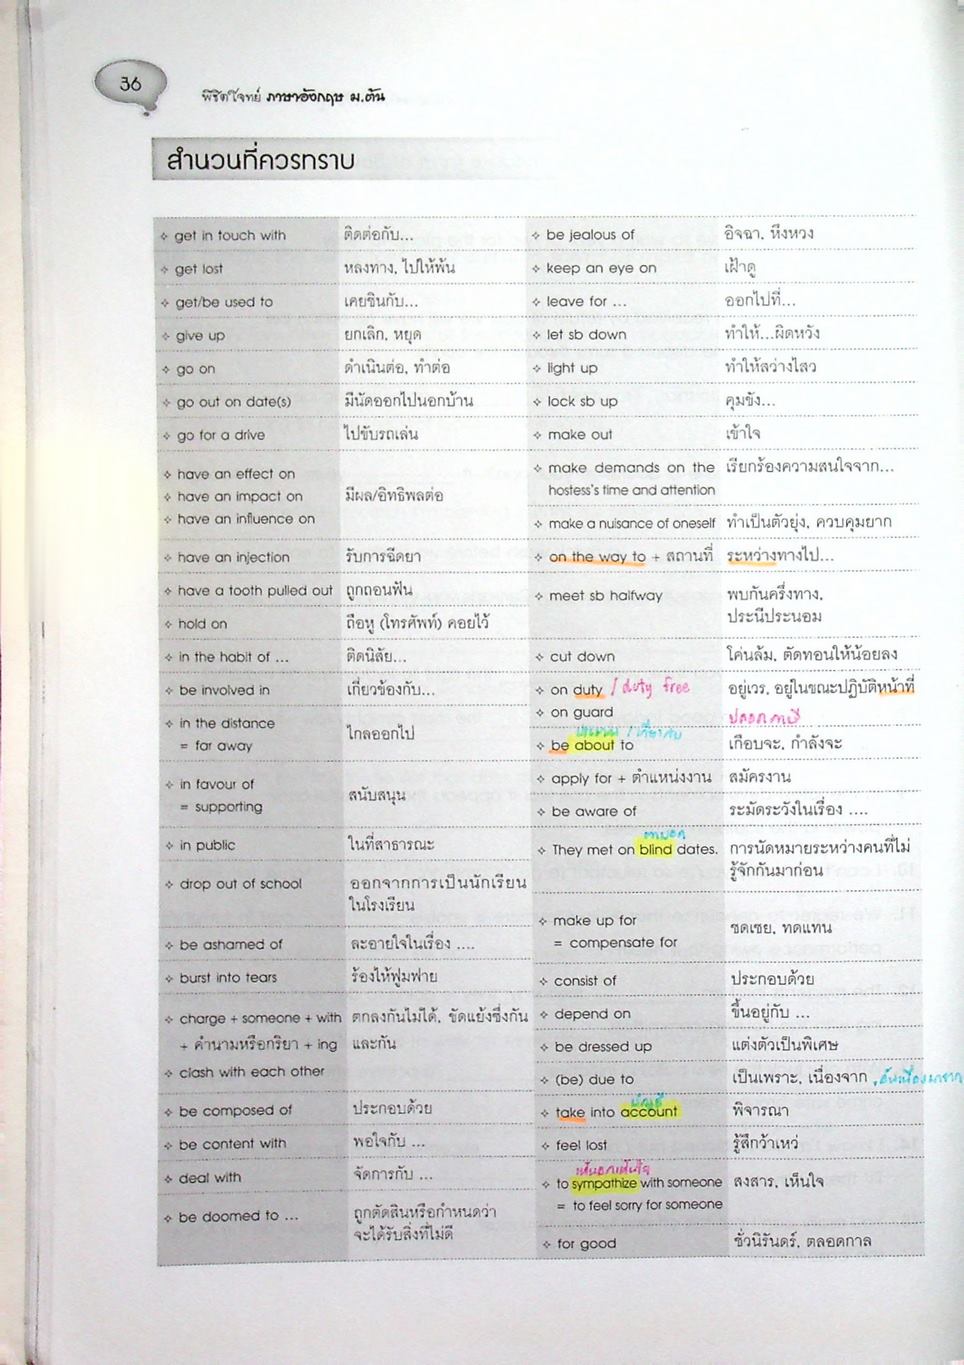 36
พิชิตโจทย์ ภาษาอังกฤษ ม.ต้น
สำนวนที่ควรทราบ
✧ get in touch with ติดต่อกับ...
✧ get lost หลงทาง, ไปให้พ้น
✧ get/be used to เคยชินกับ...
✧ give up ยกเลิก, หยุด
✧ go on ดำเนินต่อ, ทำต่อ
✧ go out on date(s) มีนัดออกไปนอกบ้าน
✧ go for a drive ไปขับรถเล่น
✧ have an effect on
✧ have an impact on มีผล/อิทธิพลต่อ
✧ have an influence on
✧ have an injection รับการฉีดยา
✧ have a tooth pulled out ถูกถอนฟัน
✧ hold on ถือหู (โทรศัพท์) คอยไว้
✧ in the habit of ... ติดนิสัย...
✧ be involved in เกี่ยวข้องกับ...
✧ in the distance
= far away ไกลออกไป
✧ in favour of
= supporting สนับสนุน
✧ in public ในที่สาธารณะ
✧ drop out of school ออกจากการเป็นนักเรียน
ในโรงเรียน
✧ be ashamed of ละอายใจในเรื่อง ....
✧ burst into tears ร้องไห้ฟูมฟาย
✧ charge + someone + with ตกลงกันไม่ได้, ขัดแย้งซึ่งกัน
+ คำนามหรือกริยา + ing และกัน
✧ clash with each other
✧ be composed of ประกอบด้วย
✧ be content with พอใจกับ ...
✧ deal with จัดการกับ ...
✧ be doomed to ... ถูกตัดสินหรือกำหนดว่า
จะได้รับสิ่งที่ไม่ดี
✧ be jealous of อิจฉา, หึงหวง
✧ keep an eye on เฝ้าดู
✧ leave for ... ออกไปที่...
✧ let sb down ทำให้...ผิดหวัง
✧ light up ทำให้สว่างไสว
✧ lock sb up คุมขัง...
✧ make out เข้าใจ
✧ make demands on the เรียกร้องความสนใจจาก...
hostess's time and attention
✧ make a nuisance of oneself ทำเป็นตัวยุ่ง, ควบคุมยาก
✧ on the way to + สถานที่ ระหว่างทางไป...
✧ meet sb halfway พบกันครึ่งทาง,
ประนีประนอม
✧ cut down โค่นล้ม, ตัดทอนให้น้อยลง
✧ on duty / duty free อยู่เวร, อยู่ในขณะปฏิบัติหน้าที่
✧ on guard ปลอดภาษี
/ เกี่ยวกับ
✧ be about to เกือบจะ, กำลังจะ
✧ apply for + ตำแหน่งงาน สมัครงาน
✧ be aware of ระมัดระวังในเรื่อง ....
ตาบอด
✧ They met on blind dates. การนัดหมายระหว่างคนที่ไม่
รู้จักกันมาก่อน
✧ make up for
= compensate for ชดเชย, ทดแทน
✧ consist of ประกอบด้วย
✧ depend on ขึ้นอยู่กับ ...
✧ be dressed up แต่งตัวเป็นพิเศษ
✧ (be) due to เป็นเพราะ, เนื่องจาก , อันเนื่องมาจาก
บัญชี
✧ take into account พิจารณา
✧ feel lost รู้สึกว้าเหว่
เห็นอกเห็นใจ
✧ to sympathize with someone สงสาร, เห็นใจ
= to feel sorry for someone
✧ for good ชั่วนิรันดร์, ตลอดกาล